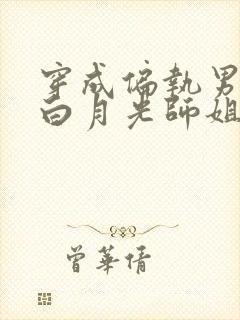 穿成偏執男
白月光師姐
曾華倩